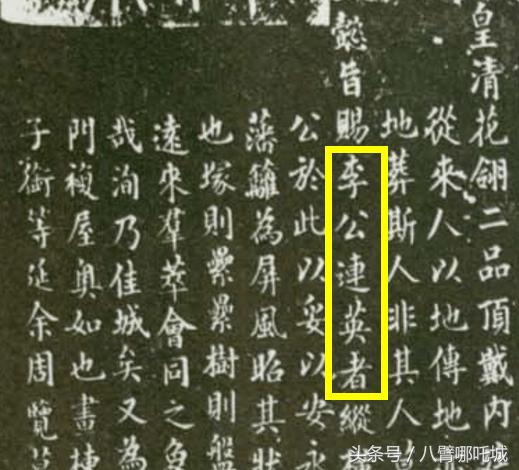 皇清花翎二品頂戴內
從來人以地傳地
地葬斯人非其人
懿旨賜李公連英者縱
公於此以妥以安永
藩籬為屏風昭其狀
也塚則纍纍樹則盤
遠來羣萃會同之魚
哉洵乃佳城矣又為
門複屋奥如也畫棟
子銜等延余周覽
头条号／八臂哪吒城